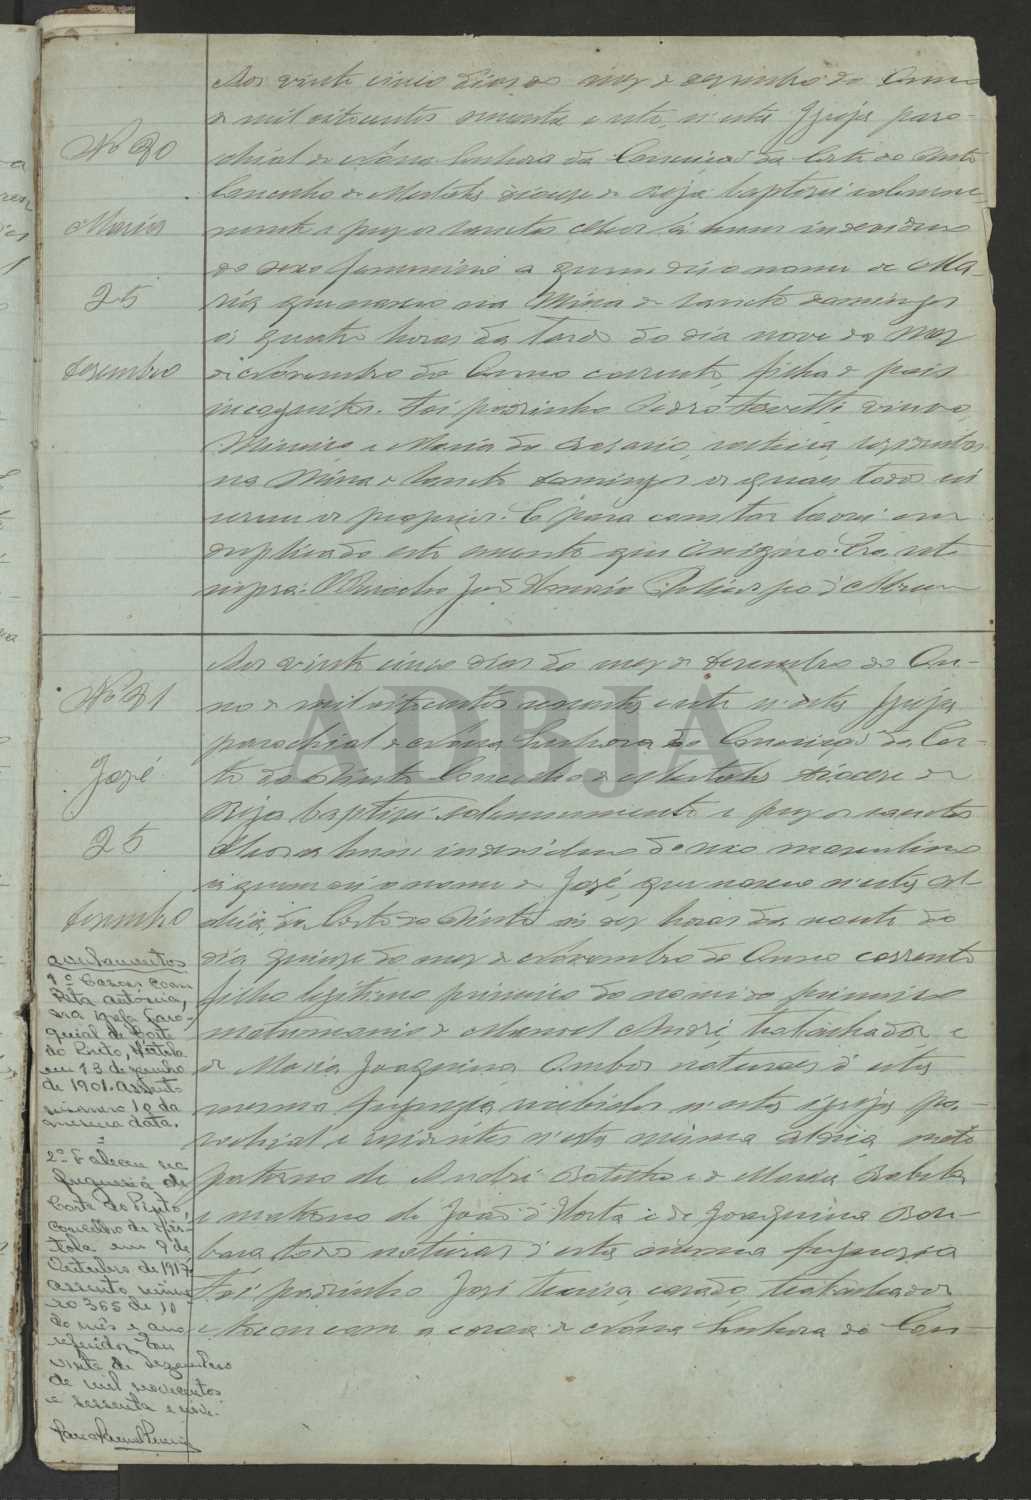 Nº 30
Maria
25
dezembro
Aos vinte cinco dias do mez de dezembro do Anno
de mil oitocentos e oito, n'esta Igreja paro-
chial de Nossa Senhora da Conceição da Corte do Pinto
Concelho de Mertola diocese de Beja baptizei solemne-
mente e puz os santos oleos a hum individuo
do sexo femenino a quem dei o nome de Ma-
ria que nasceu na Mina de Sancto Domingos
ás quatro horas da tarde do dia nove do mez
de Novembro do Anno corrente, filha de pais
incognitos. Foi padrinho Pedro viuvo,
Mineiro e Maria do Rosario, solteira, rezidentes
na Mina de Sancto Domingos os quaes todos
serem os proprios. E para constar lavrei em
duplicado este assento que assigno. Era ut
supra. O Parocho José Policarpo d'Abreu
Nº 31
José
25
dezembro
Aos vinte cinco dias do mez de dezembro do An-
no de mil oitocentos e oito n'esta Igreja
parochial de Nossa Senhora da Conceição da Cor-
te do Pinto Concelho de Mertola Diocese de
Beja baptizei solemnemente e puz os santos
oleos a hum individuo do sexo masculino
a quem dei o nome de José, que nasceu n'esta Al-
deia da Corte do Pinto ás dez horas da noute do
dia quinze do mez de Novembro do Anno corrente
filho legitimo primeiro do nome do primeiro
matrimonio de Manoel André, trabalhador, e
de Maria Joaquina Ambos naturaes d'esta
mesma freguezia, recebidos n'esta igreja pa-
rochial e rezidentes n'esta mesma aldeia, neto
paterno de André Botelho e de Maria
e materno de João d'Horta e de Joaquina Bar-
bara todos naturaes d'esta mesma freguezia
Foi padrinho José casado, trabalhador
e tocou com a coroa de Nossa Senhora da Con-
Averbamentos
1º Casou com
Rita Antonia,
na igreja paro-
quial de Corte
do Pinto, Mertola
em 13 de junho
de 1901. Assento
numero 10 da
mesma data.
2º Faleceu na
freguesia de
Corte do Pinto,
Concelho de Mér-
tola em 9 de
Outubro de 1917
assento núme-
ro 365 de 10
do mês e ano
referidos. Em
vinte de Dezembro
de mil novecentos
e sessenta e nove.
ADBJA